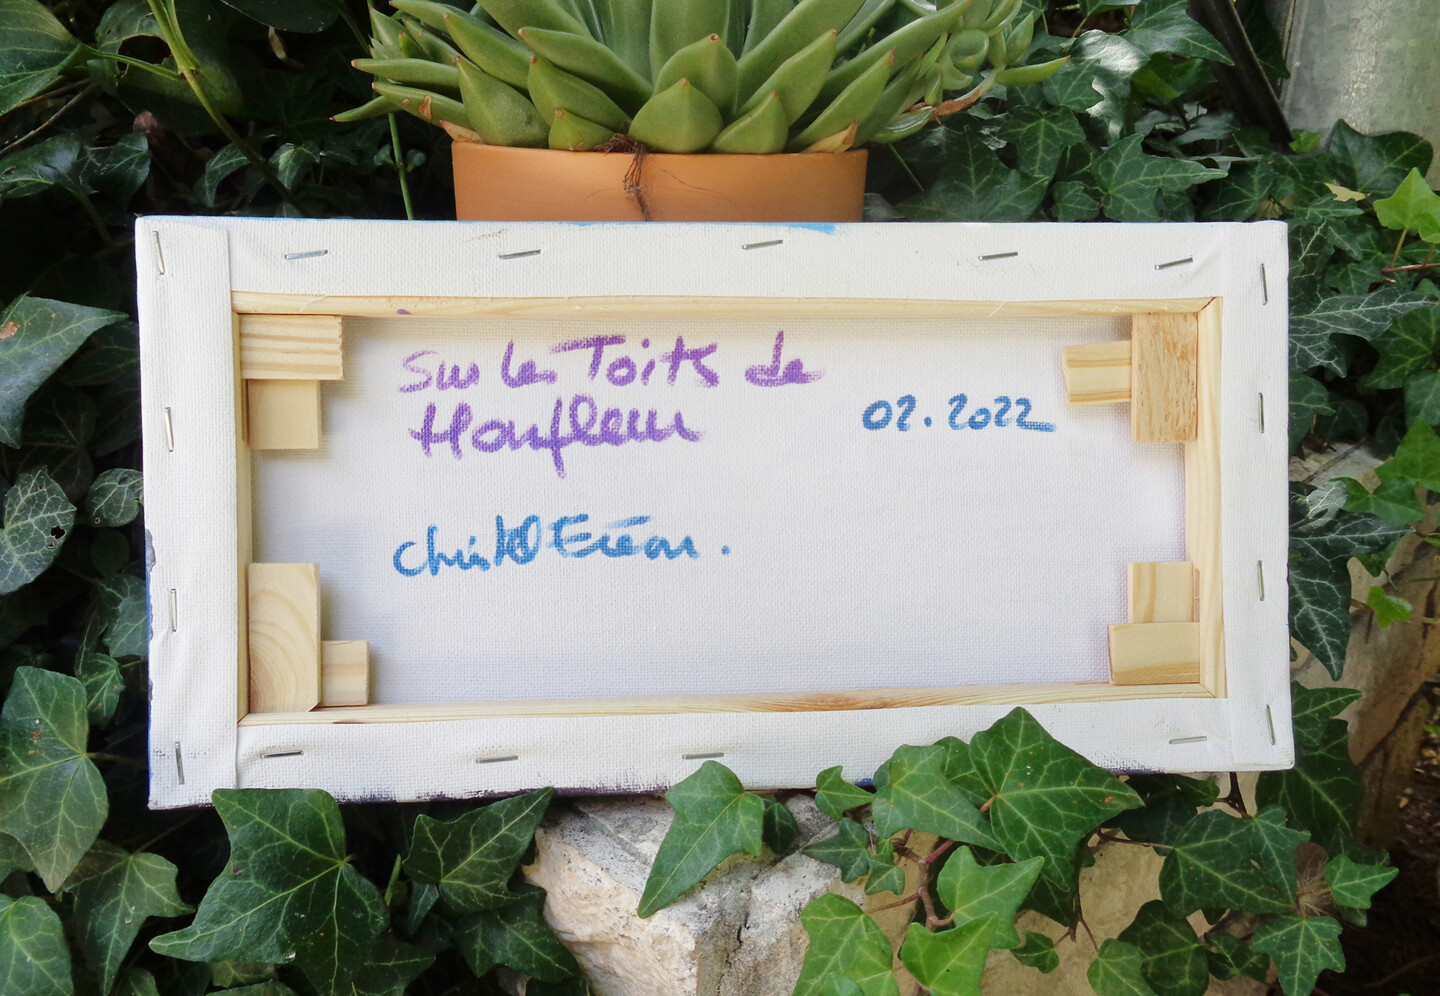 Sur les Toits de
Honfleur
02.2022
Christel Eréon.